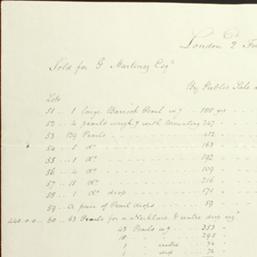 London 2
Sold for G Martinez Esqr
By Public Sale
Lots
51 .. 1 large Barrick Pearl wg 100 grs
52 .. 4 pearls weighg with 247
53 129 Pearls 412
54 .. 5 Do 163
55 .. 1 Do 192
56 .. 4 Do 109
57 .. 15 Do 216
58 .. 1 Do drop 171
59 .. A pair of Pearl drops 59
240.0.0 60 .. 63 Pearls for a Necklace & centre drop wg
43 Pearls wg 353
18 295
1 centre 34
1 drop 74